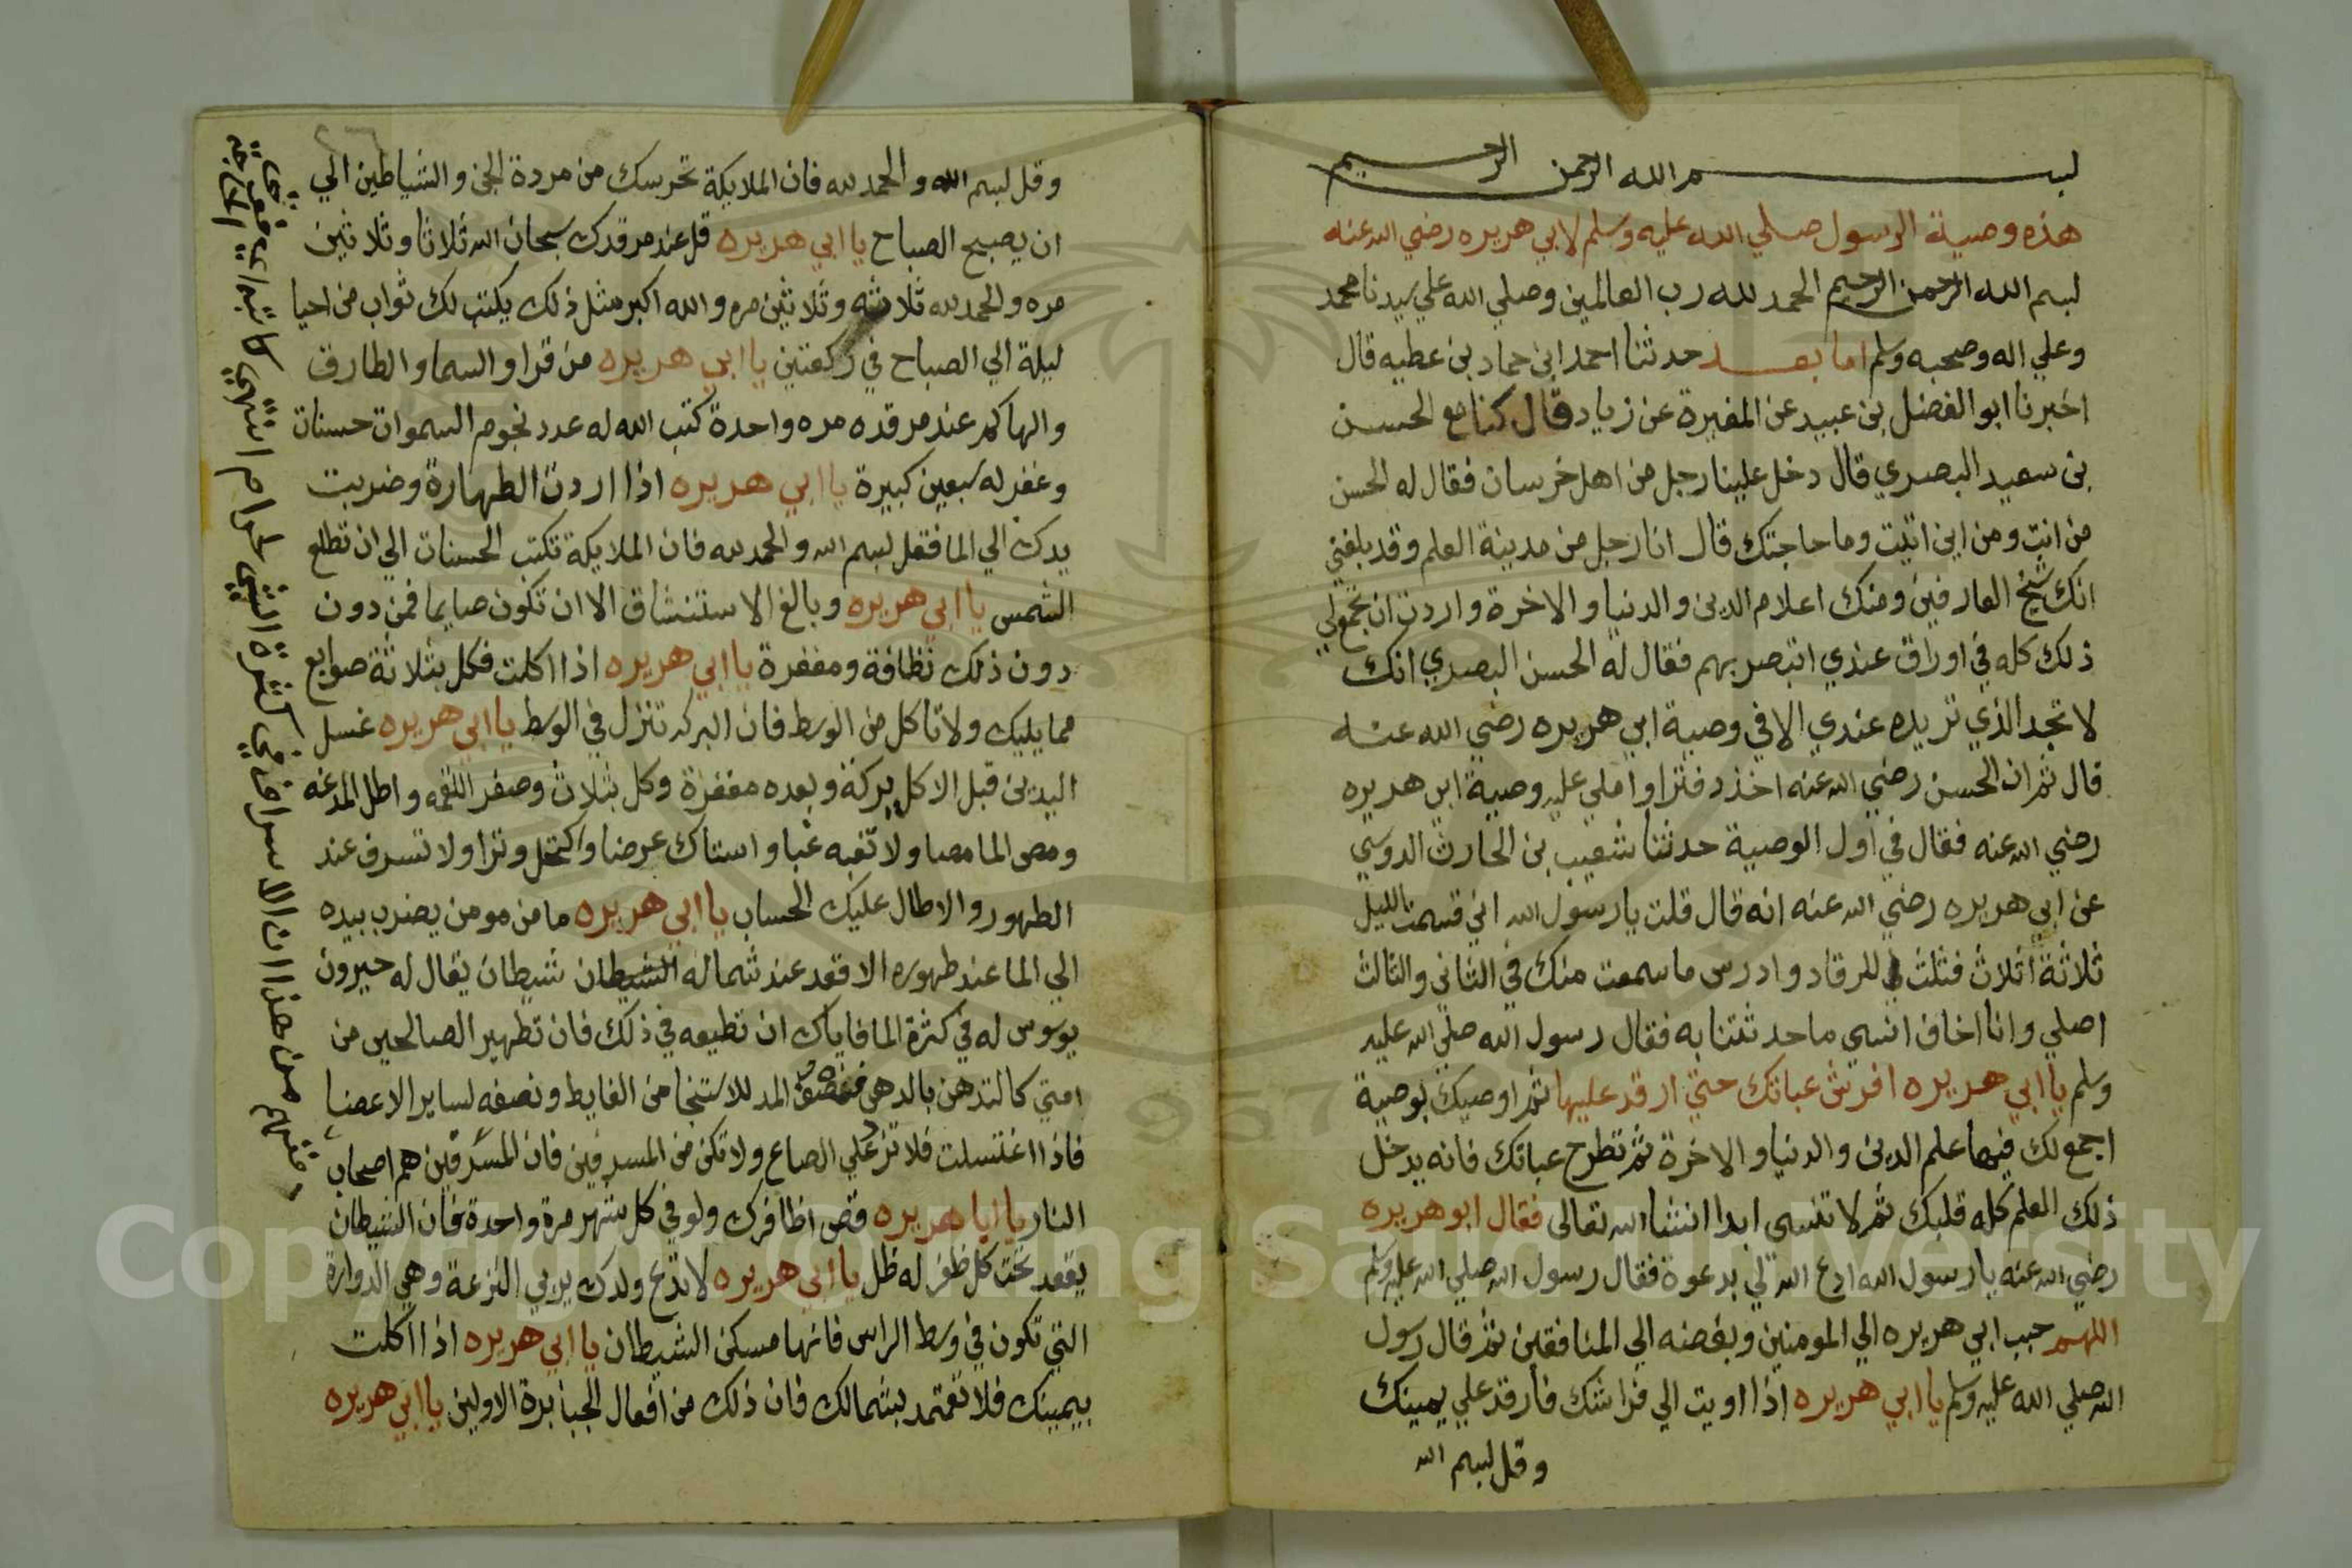 بسم الله الرحمن الرحيم
هذه وصية الرسول صلي الله عليه وسلم لابي هريره رضي الله عنه
بسم الله الرحمن الرحيم الحمد لله رب العالمين وصلي الله علي سيدنا محمد
وعلي اله وصحبه وسلم اما بعد حدثنا احمد ابن حماد بن عطيه قال
اخبرنا ابو الفضل بن عبيد عن المغيرة عن زياد قال كنا مع الحسن
بن سعيد البصري قال دخل علينا رجل من اهل خرسان فقال له الحسن
من انت ومن اين اتيت وما حاجتك قال انا رجل من مدينة العلم وقد بلغني
انك شيخ العارفين ومنك اعلام الدين والدنيا والاخرة واردت ان تجمع لي
ذلك كله في اوراق عندي اتبصر بهم فقال له الحسن البصري انك
لا تجد الذي تريده عندي الا في وصية ابي هريره رضي الله عنه
قال ثم ان الحسن رضي الله عنه اخذ دفترا واملي عليه وصية ابي هريره
رضي الله عنه فقال في اول الوصية حدثنا شعيب بن الحارث الدوسي
عن ابي هريره رضي الله عنه انه قال قلت يا رسول الله اني قسمت الليل
ثلاثة اثلاث فثلث للرقاد وادرس ما سمعت منك في الثاني والثالث
اصلي وانا اخاف انسي ما حدثتنا به فقال رسول الله صلي الله عليه
وسلم يا ابي هريره افرش عباتك حتي ارقد عليها ثم اوصيك بوصية
اجمع لك فيها علم الدين والدنيا والاخرة ثم تطرح عباتك فانه يدخل
ذلك العلم كله قلبك ثم لا تنسي ابدا انشا الله تعالى فقال ابو هريره
رضي الله عنه يا رسول الله ادع الله لي بدعوة فقال رسول الله صلي الله عليه وسلم
اللهم حبب ابي هريره الي المومنين وبغضه الي المنافقين ثم قال رسول
الله صلي الله عليه وسلم يا ابي هريره اذا اويت الي فراشك فارقد علي يمينك
وقل بسم الله
وقل بسم الله والحمد لله فان الملايكة تحرسك من مردة الجن والشياطين الي
ان يصبح الصباح يا ابي هريره قل عند مرقدك سبحان الله ثلاثا وثلاثين
مره والحمد لله ثلاثه وثلاثين مره والله اكبر مثل ذلك يكتب لك ثواب من احيا
ليلة الي الصباح في ركعتين يا ابي هريره من قرا والسما والطارق
والهاكم عند مرقده مره واحدة كتب الله له عدد نجوم السموات حسنات
وغفر له سبعين كبيرة يا ابي هريره اذا اردت الطهارة وضربت
يدك الي الما فقل بسم الله والحمد لله فان الملايكة تكتب الحسنات الي ان تطلع
الشمس يا ابي هريره وبالغ الاستنشاق الا ان تكون صايما فمن دون
دون ذلك نظافة ومغفرة يا ابي هريره اذا اكلت فكل بثلاثة صوابع
مما يليك ولا تاكل من الوسط فان البركه تنزل في الوسط يا ابي هريره غسل
اليدين قبل الاكل بركة وبعده مغفرة وكل بثلاث وصغر اللقمه واطل المدغه
ومص الما مصا ولا تعبه عبا واستاك عرضا واكتحل وترا ولا تسرف عند
الطهور والا طال عليك الحساب يا ابي هريره ما من مومن يضرب بيده
الي الما عند طهوره الا قعد عند شماله الشيطان شيطان يقال له حيرون
يوسوس له في كثرة الما فاياك ان تطيعه في ذلك فان تطهير الصالحين من
امتي كالتدهن بالدهن فنصف المد للاستنجا من الغايط ونصفه لساير الاعضا
فاذا اغتسلت فلا تزد علي الصاع ولا تكن من المسرفين فان المسرفين هم اصحاب
النار يا ابا هريره قص اظافرك ولو في كل شهر مرة واحدة فان الشيطان
يقعد تحت كل ظفر له ظل يا ابي هريره لا تدع ولدك يربي النزعة وهي الدوارة
التي تكون في وسط الراس فانها مسكن الشيطان يا ابي هريره اذا اكلت
بيمينك فلا تعتمد بشمالك فان ذلك من افعال الجبابرة الاولين يا ابي هريره
Copyright © King Saud University
1957